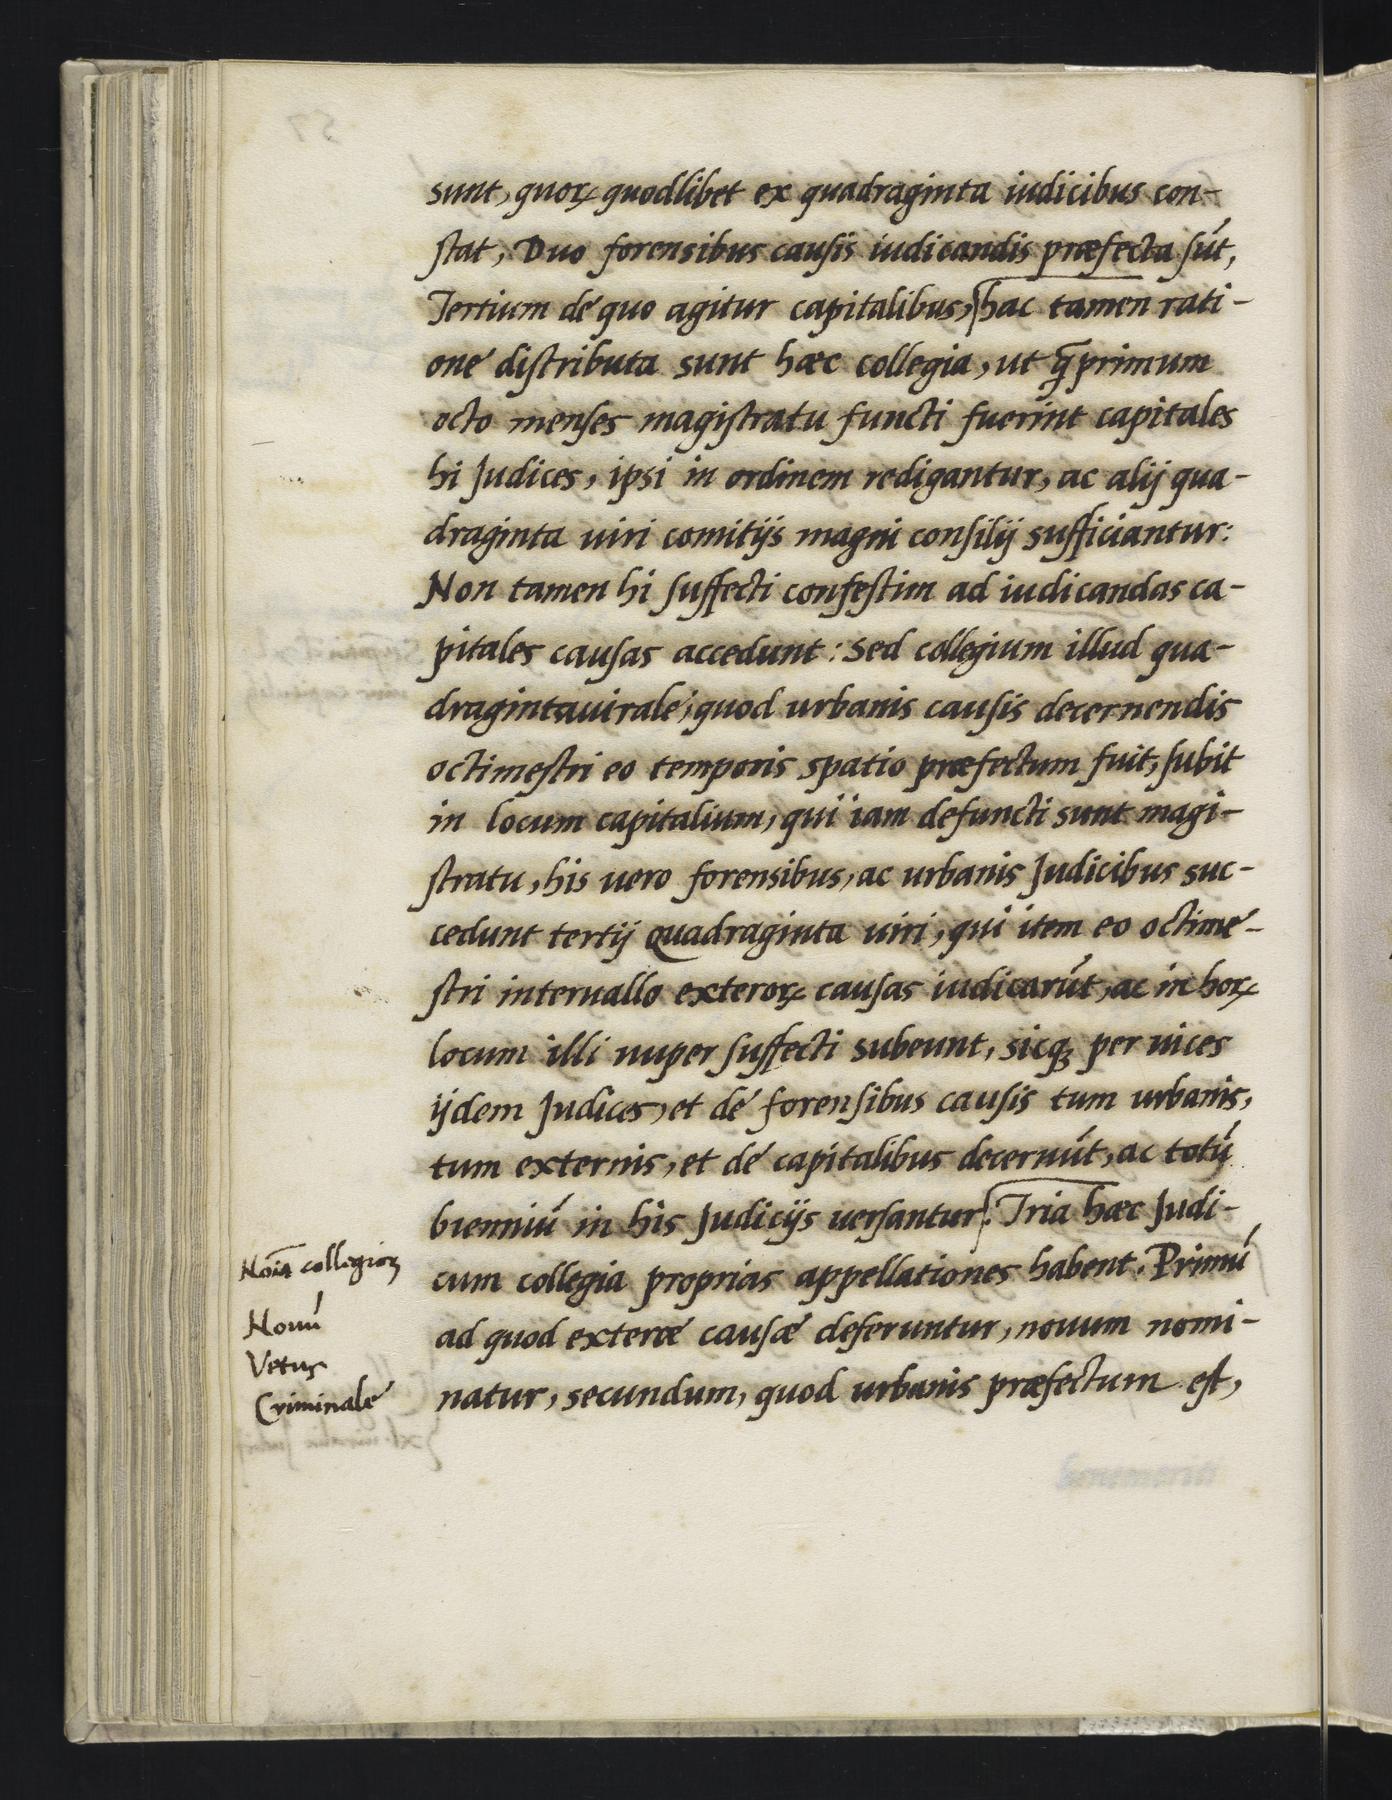 sunt, quorꝝ quodlibet ex quadraginta iudicibus con-
stat, Duo forensibus causis iudicandis præfecta sūt,
Tertium de quo agitur capitalibus, hac tamen rati-
one distributa sunt hæc collegia, ut q̄primum
octo menses magistratu functi fuerint capitales
hi Judices, ipsi in ordinem redigantur, ac alij qua-
draginta uiri comitijs magni consilij sufficiantur:
Non tamen hi suffecti confestim ad iudicandas ca-
pitales causas accedunt: Sed collegium illud qua-
dragintauirale, quod urbanis causis decernendis
octimestri eo temporis spatio præfectum fuit, subit
in locum capitalium, qui iam defuncti sunt magi-
stratu, his uero forensibus, ac urbanis Judicibus suc-
cedunt tertij Quadraginta uiri, qui item eo octime-
stri interuallo exterorꝝ causas iudicarūt, ac in horꝝ
locum illi nuper suffecti subeunt, sicqꝫ per uices
ijdem Judices, et de forensibus causis tum urbanis,
tum externis, et de capitalibus decernūt, ac totū
bienniū in his Judicijs uersantur. Tria hæc Judi-
cum collegia proprias appellationes habent. Primū
ad quod exteræ causæ deferuntur, nouum nomi-
natur, secundum, quod urbanis præfectum est,
Noīa collegioꝝ
Nouū
Vetus
Criminale